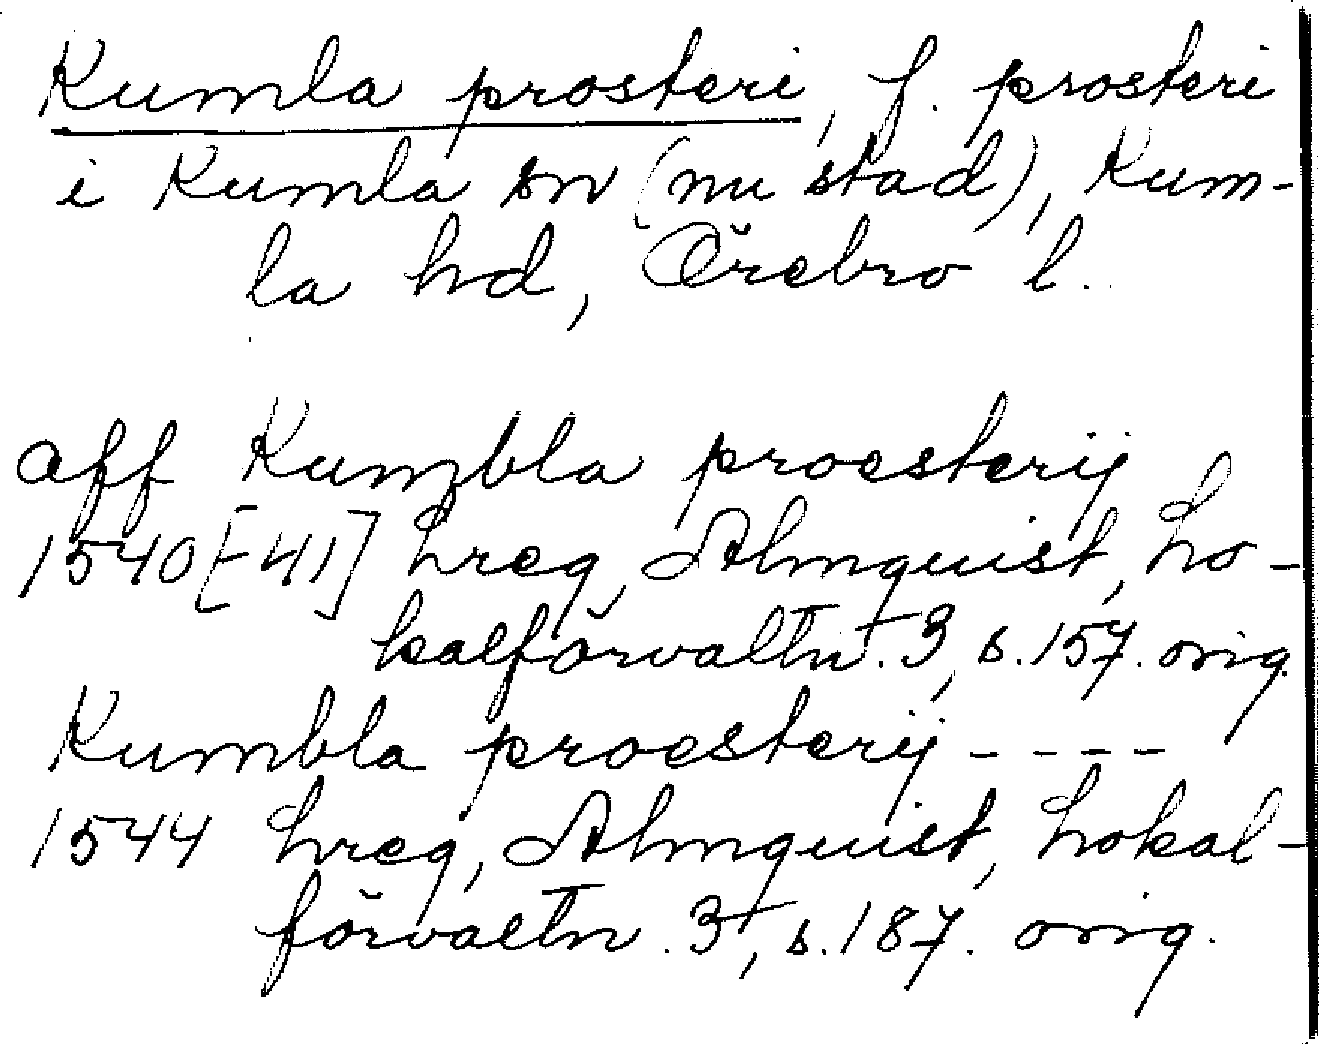 Kumla prosteri, f. prosteri
i Kumla sn (nu stad), Kum-
la hd, Örebro l.
aff Kumbla proesterij
1540[-41] Lreg, Almquist, Lo-
kalförvaltn. 3, s. 157. orig.
Kumbla proesterij - - - -
1544 Lreg, Almquist, Lokal-
förvaltn. 3, s. 187. orig.